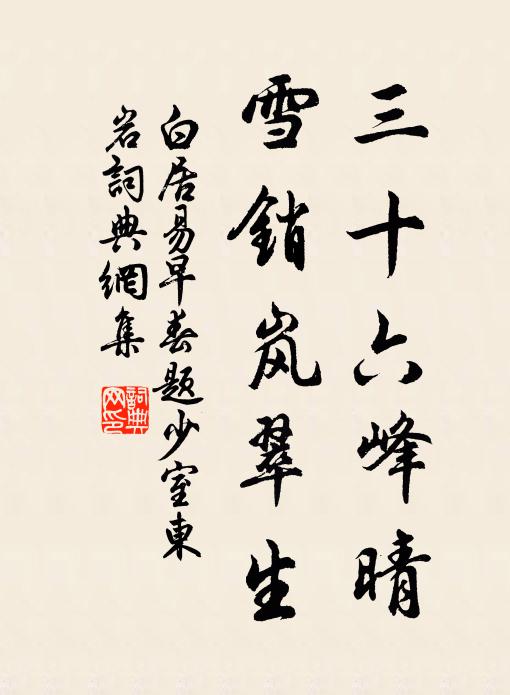 三十六峰晴
雪銷岚翠生
白居易早春題少室東
岩詞典網集
詞典
网印